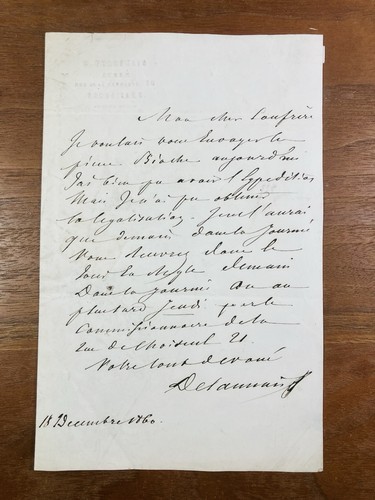 Mon cher Confrère
Je voulais vous Envoyer le
pièce Bioche aujourd'hui
J'ai bien pu avoir l'Expédition
Mais Je n'ai pu obtenir
la légalisation. Je ne l'aurai
que demain dans la Journée
Vous recevrez donc le
tout demain
Dans la Journée ou au
plus tard Jeudi par le
Commissionnaire de la
rue de Choiseul 21
Votre tout dévoué
Delaunais
18 Decembre 1860